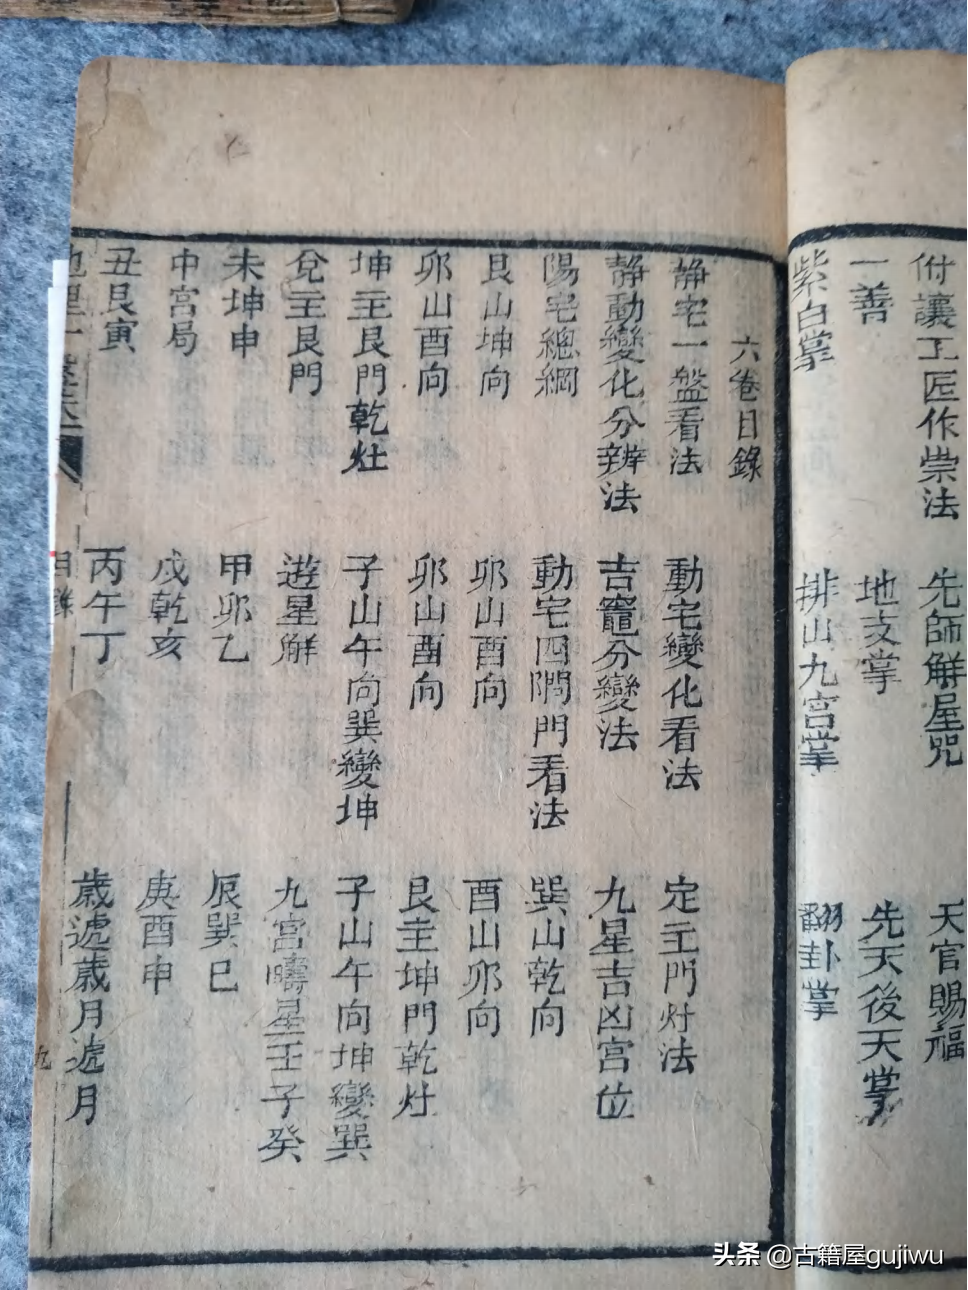 附讓工匠作祟法 先師解屋咒 天官賜福
一善 地支掌 先天後天掌
紫白掌 排山九宮掌 翻卦掌
六卷目錄
靜宅一盤看法 動宅變化看法 定主門灶法
靜動變化分辨法 吉竈分變法 九星吉凶宮位
陽宅總綱 動宅四門看法 巽山乾向
艮山坤向 卯山酉向 酉山卯向
卯山酉向 卯山酉向 艮主坤門乾灶
坤主艮門乾灶 子山午向巽變坤 子山午向坤變巽
兌主艮門 遊星解 九宮星壬子癸
未坤申 甲卯乙 辰巽巳
中宮局 戌乾亥 庚酉申
丑艮寅 丙午丁 歲遞歲月遞月
目錄
九
头条 @古籍屋gujiwu